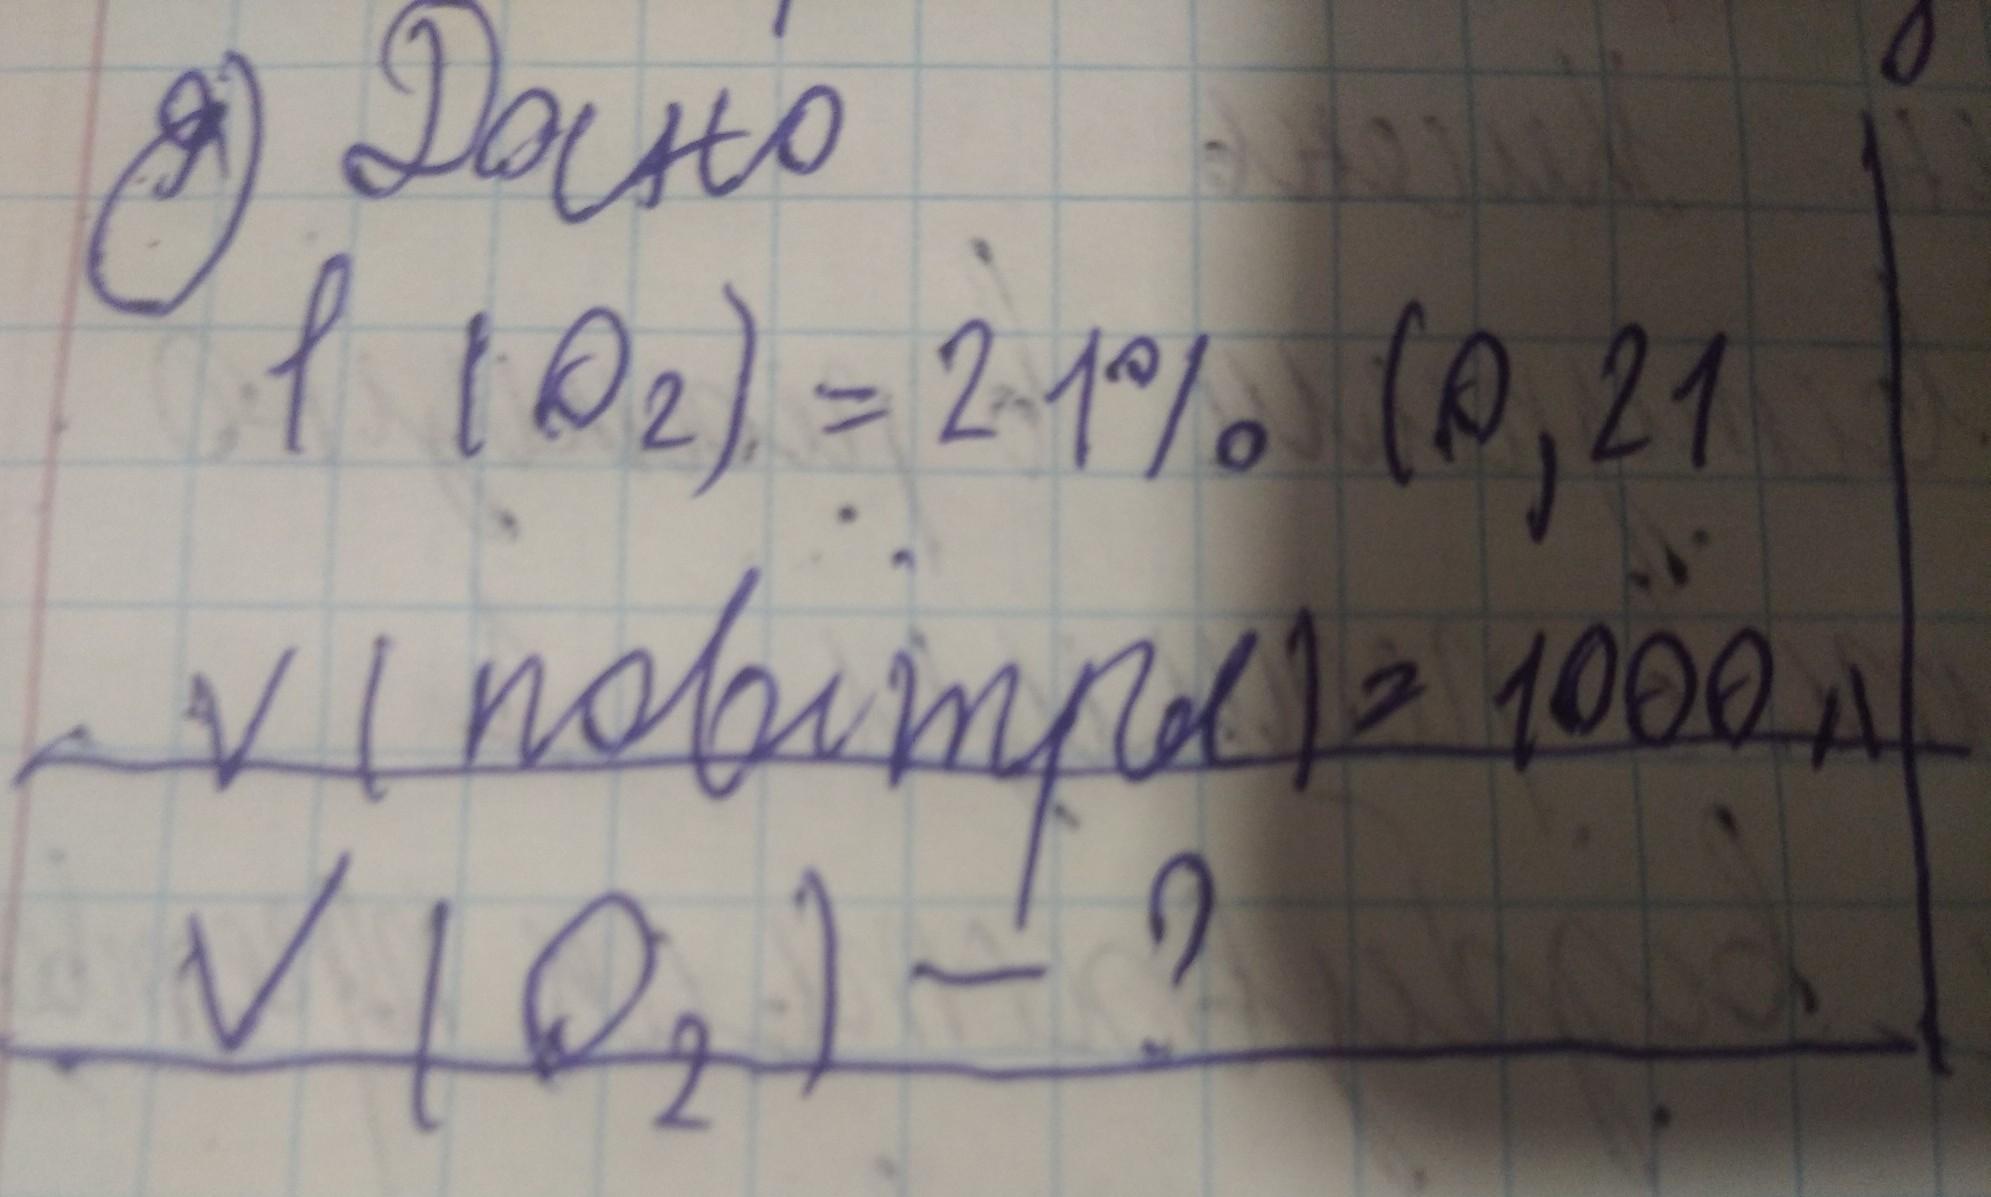 Дано
φ (O₂) = 21% (0,21
V (повітря) = 1000 л
V (O₂) - ?